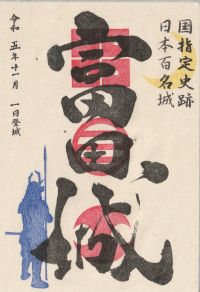 国指定史跡
日本百名城
富田城
令和 五年十一月 一日登城